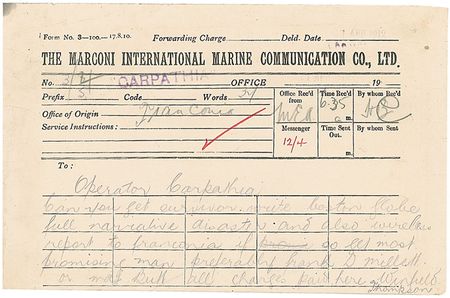 Form No. 3—100.—17.8.10. Forwarding Charge Deld. Date
APR 1912
THE MARCONI INTERNATIONAL MARINE COMMUNICATION CO., LTD.
No. CARPATHIA OFFICE 19
Prefix S Code Words
Office Rec'd from Time Rec'd 635 a m. By whom Rec'd
Office of Origin Franconia
Service Instructions:
Messenger Time Sent Out. By whom Sent
12/4 m.
To:
Operator Carpathia
Can you get survivor write boston Globe
full narrative disaster and also wireless
report to franconia if so get most
promising man preferably frank D millett
or maj butt all charges paid here Winfield
Thompson